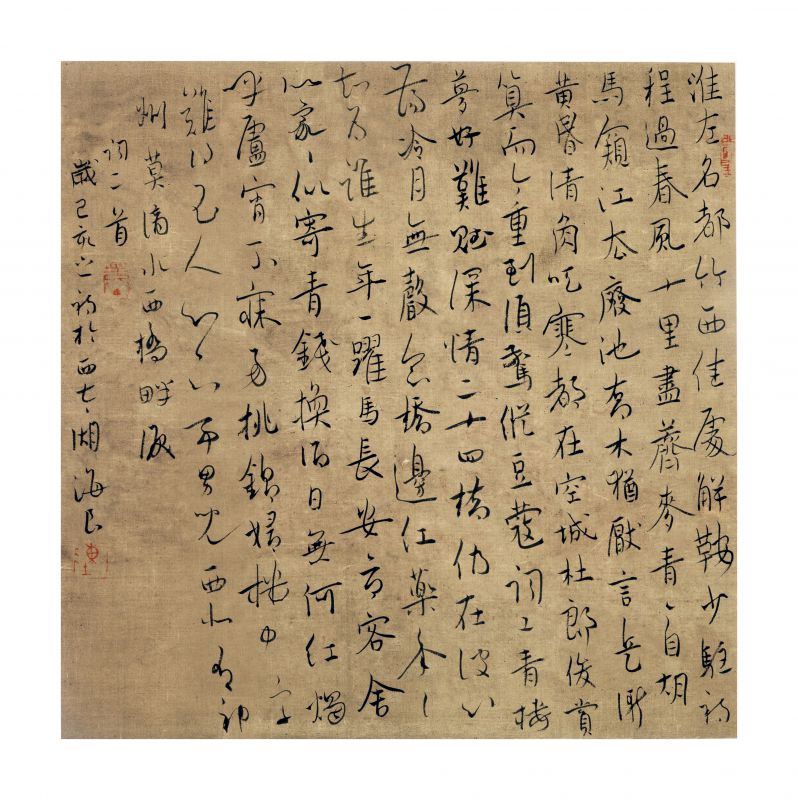 淮左名都竹西佳處解鞍少駐初
程過春風十里盡薺麥青〻自胡
馬窺江去廢池喬木猶厭言兵漸
黃昏清角吹寒都在空城杜郎俊賞
算而今重到須驚縱豆蔻詞工青樓
夢好難賦深情二十四橋仍在波心
蕩冷月無聲念橋邊紅藥年〻
知為誰生年〻躍馬長安市客舍
似家〻似寄青錢換酒日無何紅燭
呼盧宵不寐易挑錦婦機中字
難得玉人心下事男兒西北有神
州莫滴水西橋畔淚
詞二首
歲己亥之初於西湖海